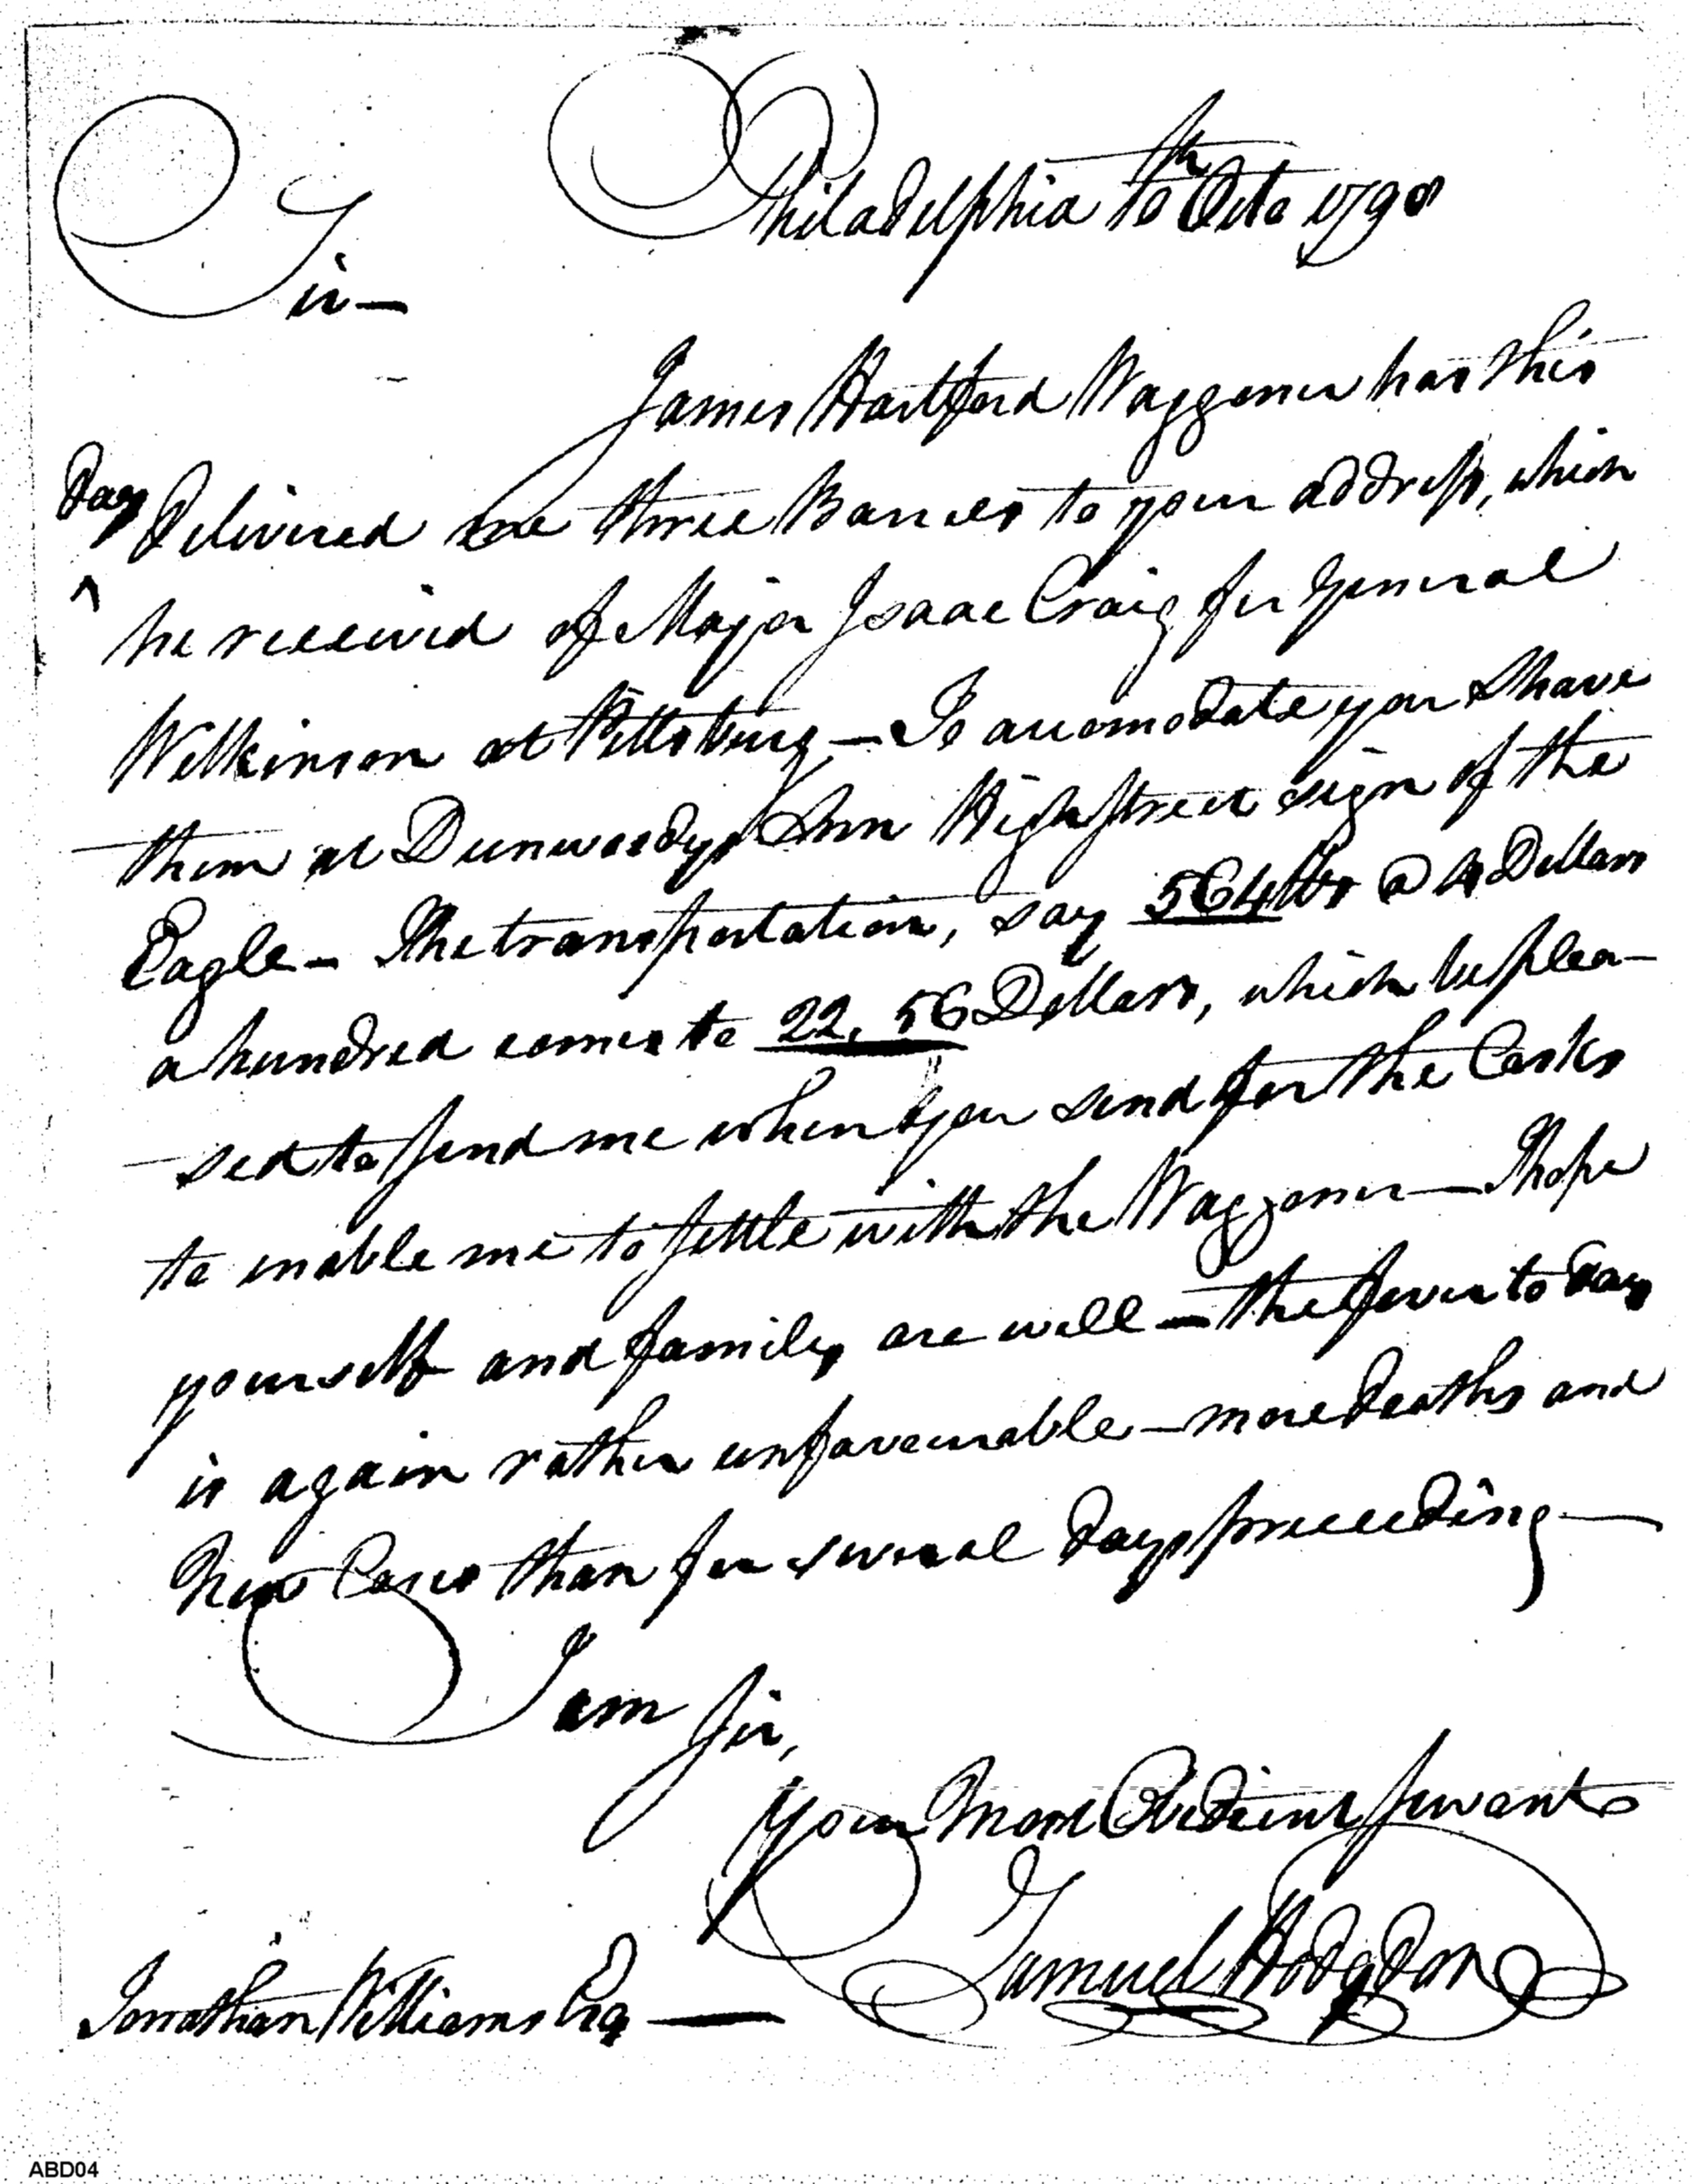 Philadelphia 10th Octo 1798
Sir—
James Hartford Waggoner has this
day Delivered me three Barrels to your address, which
he received of Major Isaac Craig for General
Wilkinson at Pittsburg — To accomodate you I have
them at Dunwoodys Inn High Street sign of the
Eagle — The transportation, say 564 lbs @ 4 Dollars
a hundred comes to 22.56 Dollars, which be plea-
sed to send me when you send for the Casks
to enable me to settle with the Waggoner — I hope
yourself and family are well — the fever to day
is again rather unfavourable — more deaths and
New Cases than for several days preceeding —
I am Sir,
Your Most Obedient Servant
Samuel Hodgdon
Jonathan Williams Esq —
ABD04